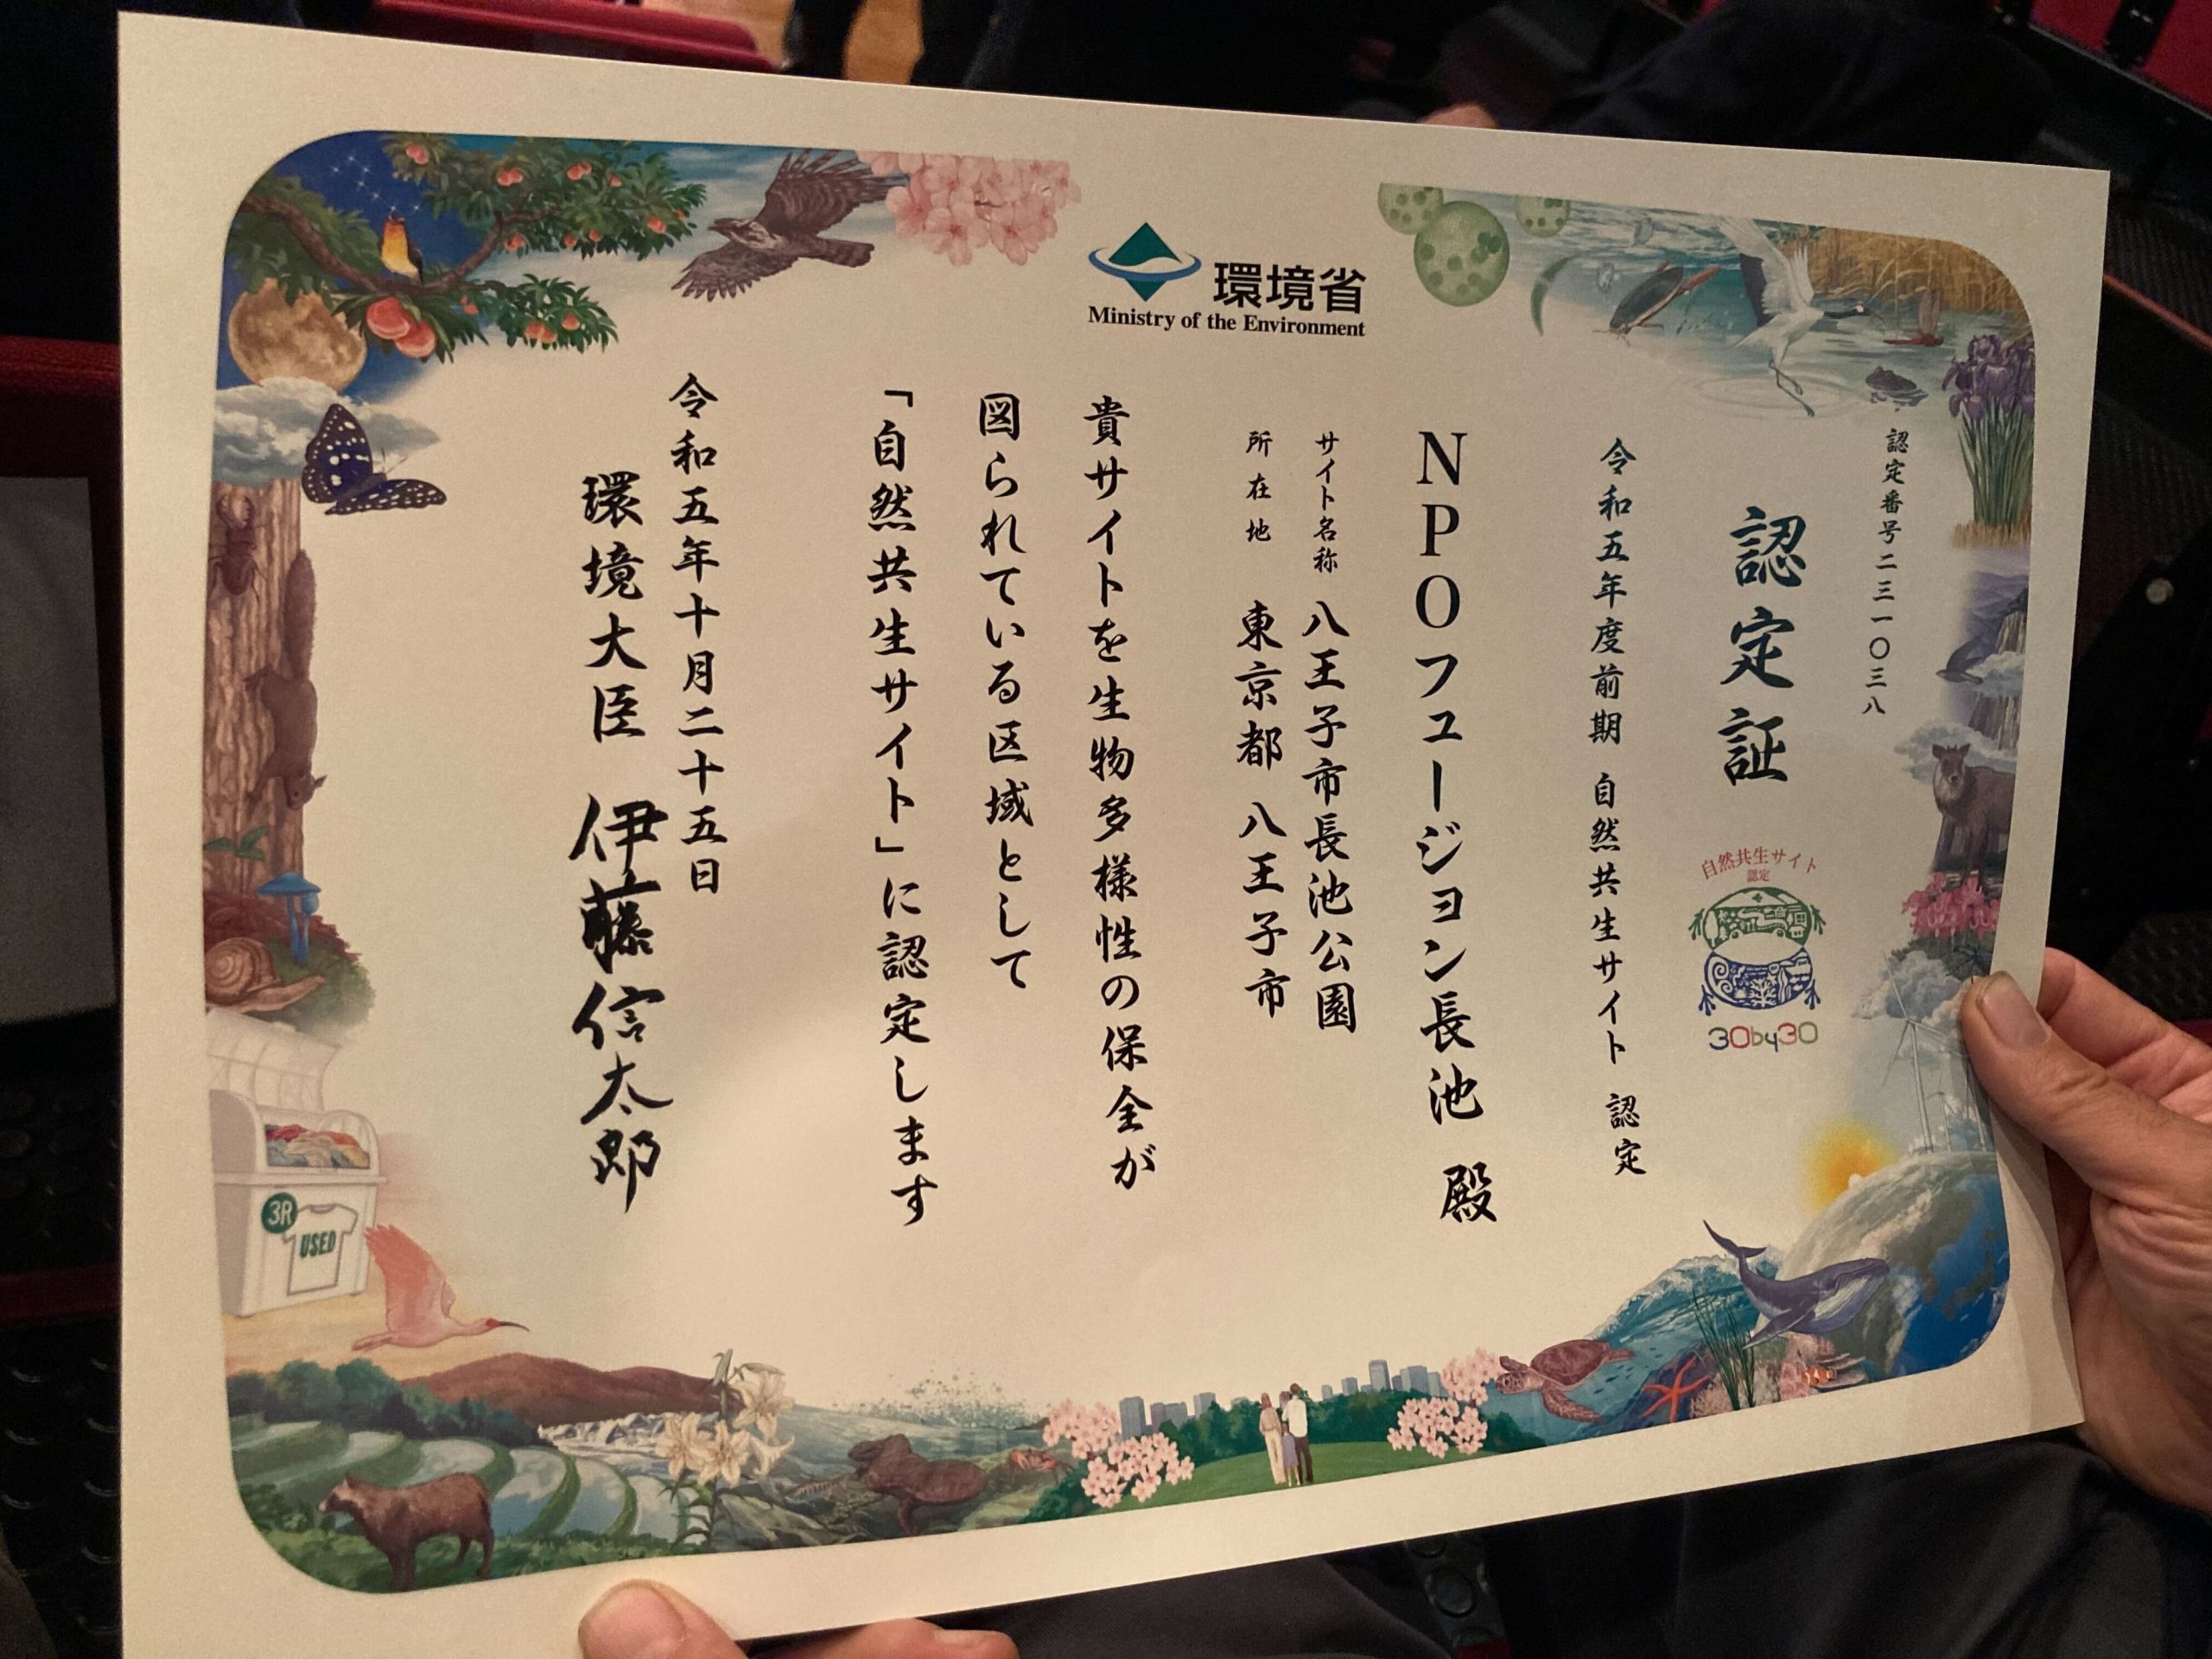 環境省
Ministry of the Environment
認定番号二三一〇三八
認定証
自然共生サイト
認定
30by30
令和五年度前期 自然共生サイト 認定
NPOフュージョン長池 殿
サイト名称 八王子市長池公園
所在地 東京都 八王子市
貴サイトを生物多様性の保全が
図られている区域として
「自然共生サイト」に認定します
令和五年十月二十五日
環境大臣 伊藤信太郎
3R
USED